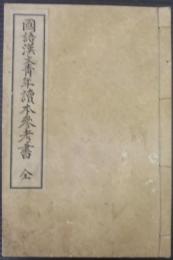 國語漢文青年讀本參考書 全